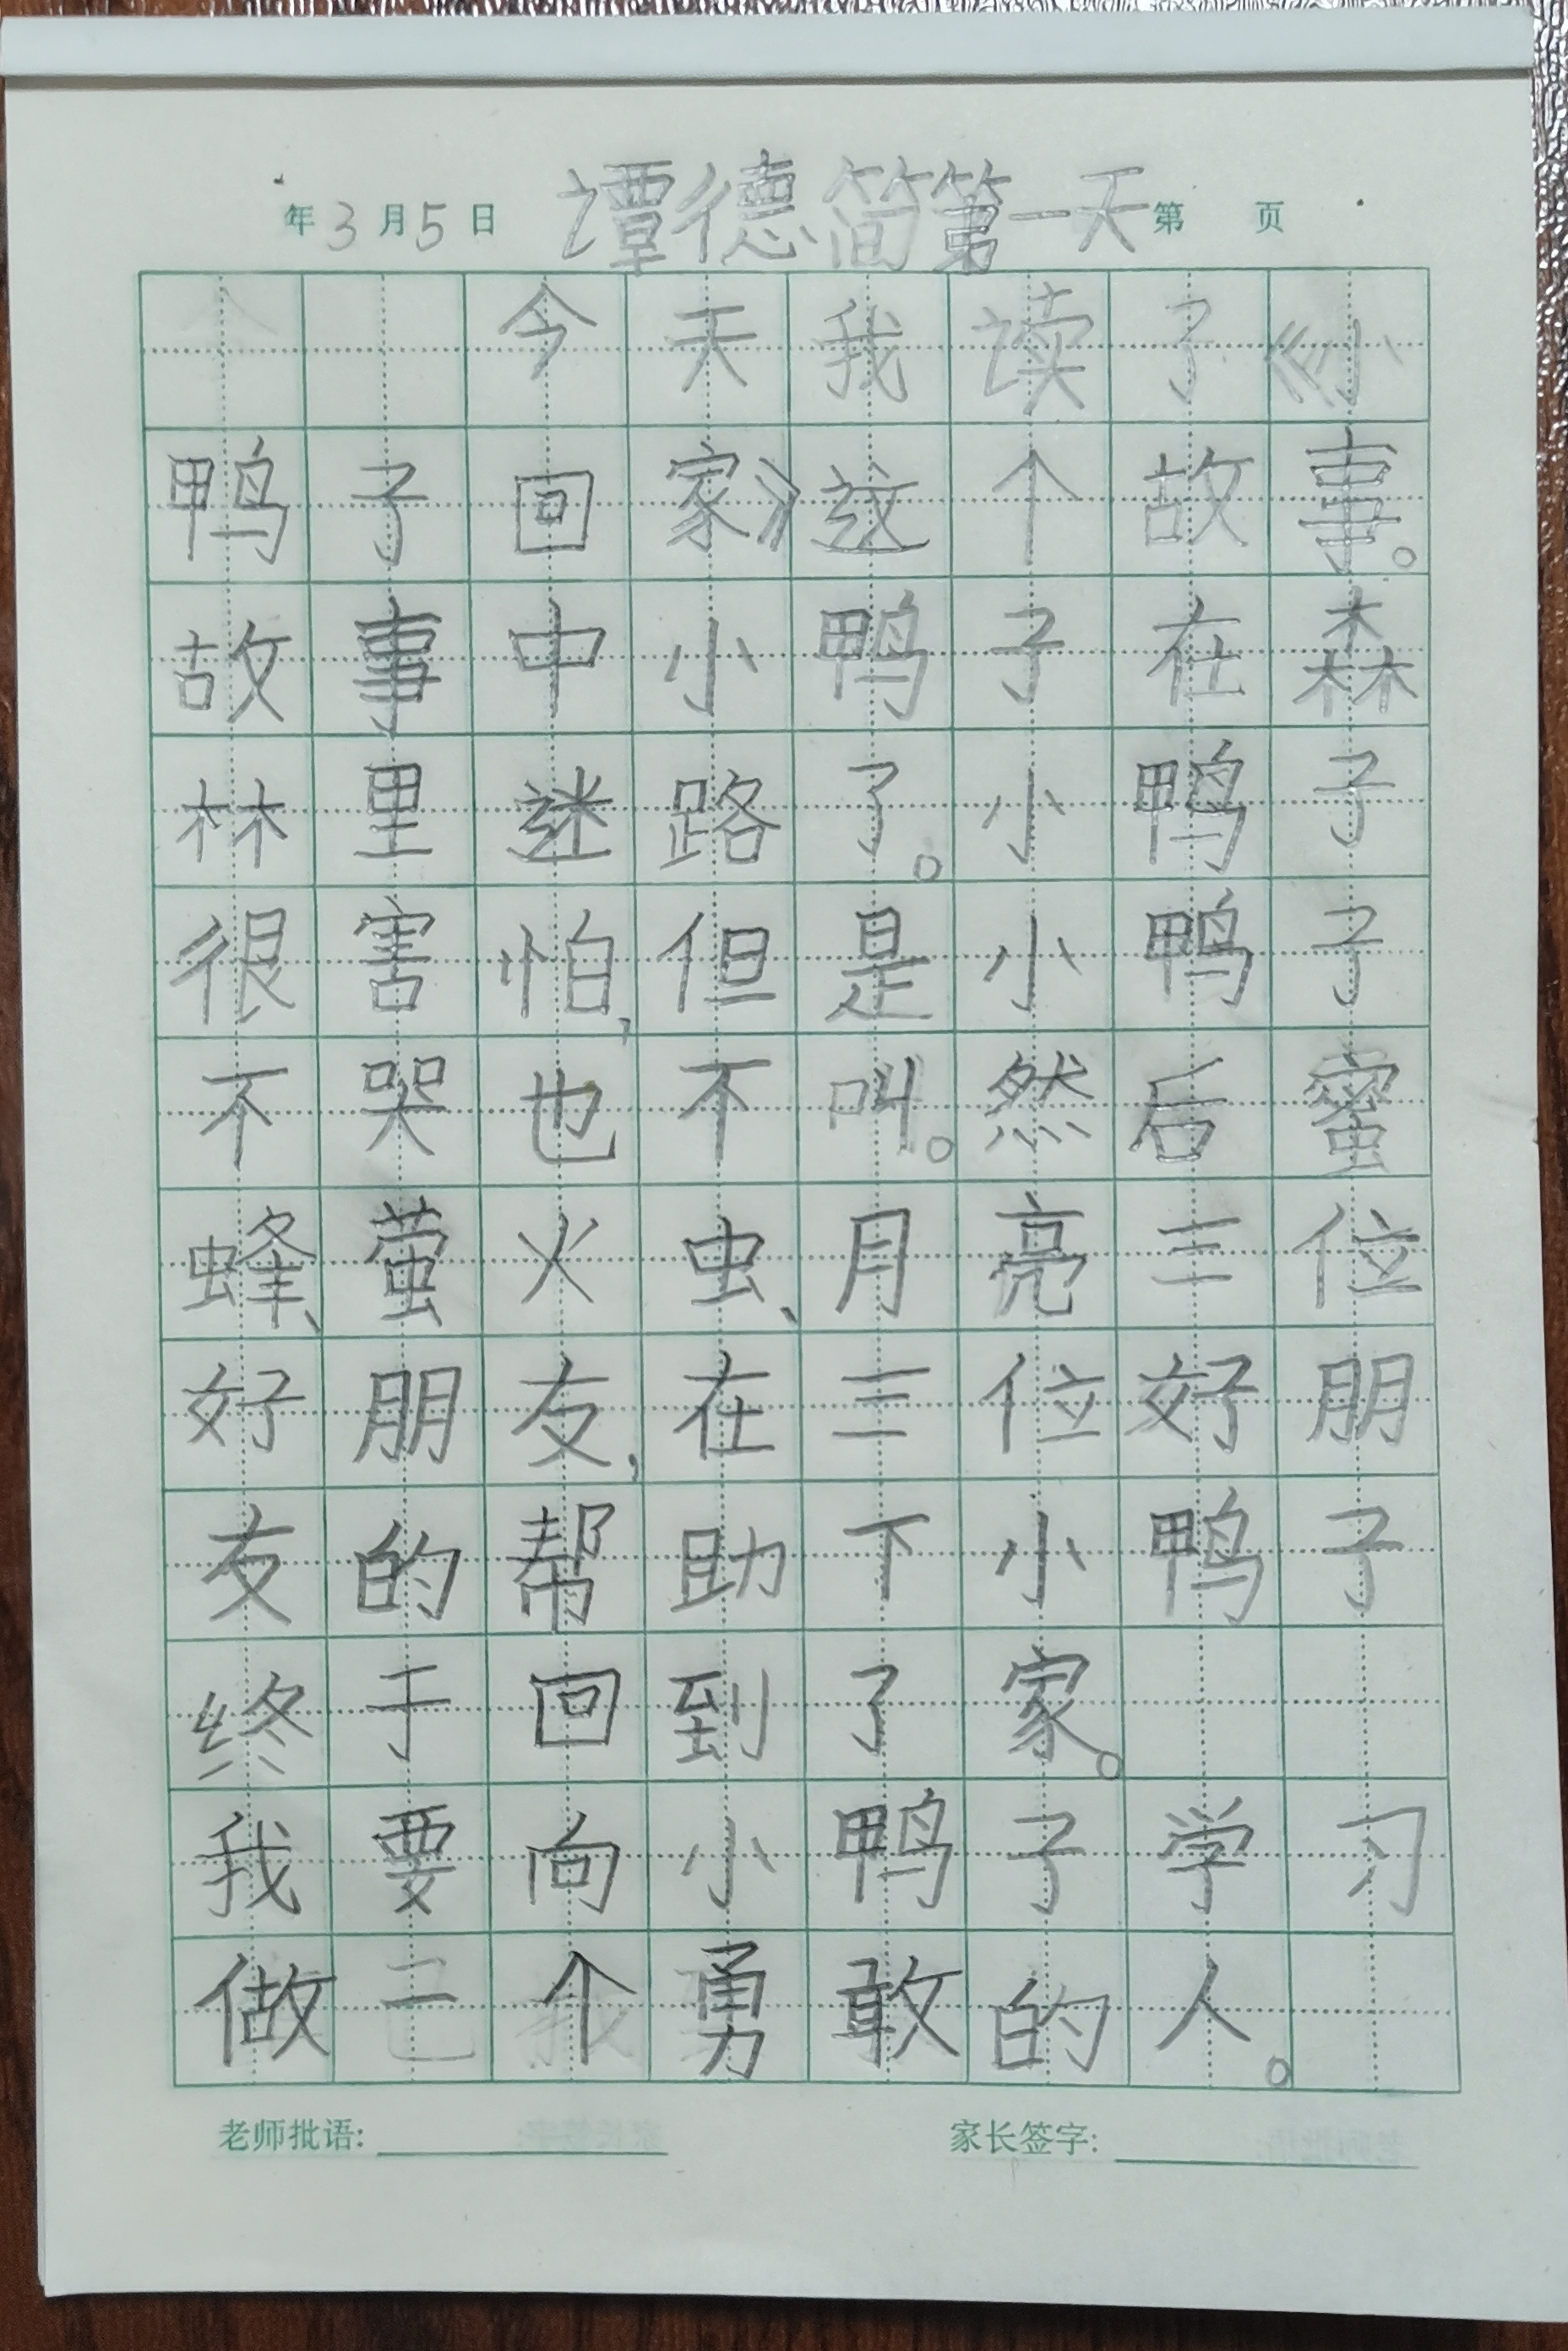 年3月5日 谭德简第一天 第 页
今天我读了《小
鸭子回家》这个故事。
故事中小鸭子在森
林里迷路了。小鸭子
很害怕,但是小鸭子
不哭也不叫。然后蜜
蜂、萤火虫、月亮三位
好朋友,在三位好朋
友的帮助下小鸭子
终于回到了家。
我要向小鸭子学习
做一个勇敢的人。
老师批语: 家长签字: